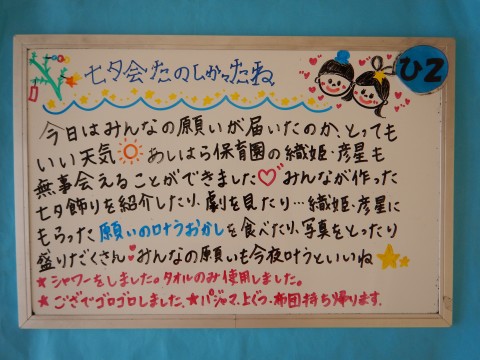 七夕会たのしかったね
ひよこ
今日はみんなの願いが届いたのか、とっても
いい天気☀あしはら保育園の織姫・彦星も
無事会えることができました♡みんなが作った
七夕飾りを紹介したり、劇を見たり…織姫・彦星に
もらった願いの叶うおかしを食べたり、写真をとったり
盛りだくさん♥みんなの願いも今夜叶うといいね★
★シャワーをしました。タオルのみ使用しました。
★ござでゴロゴロしました。★パジャマ・上ぐつ・布団持ち帰ります。